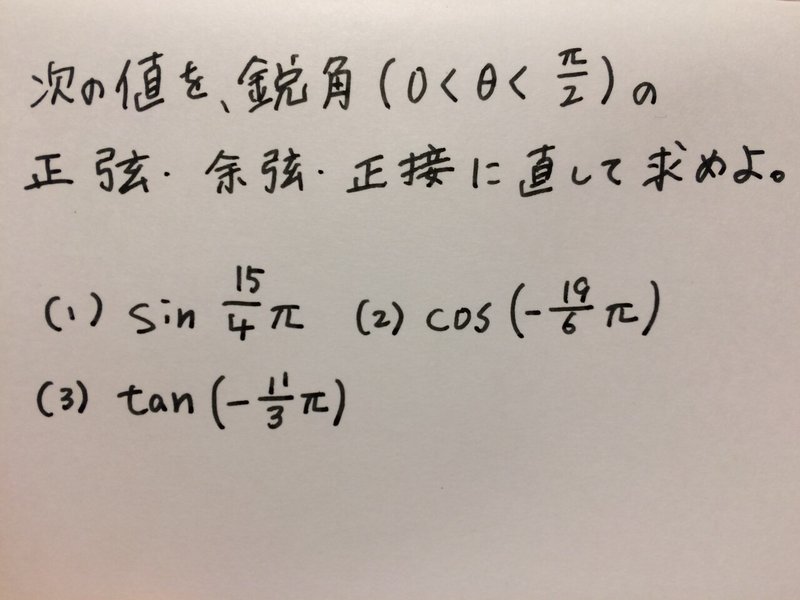 次の値を、鋭角(0<θ<π/2)の
正弦・余弦・正接に直して求めよ。
(1) sin 15/4 π (2) cos(-19/6 π)
(3) tan(-11/3 π)